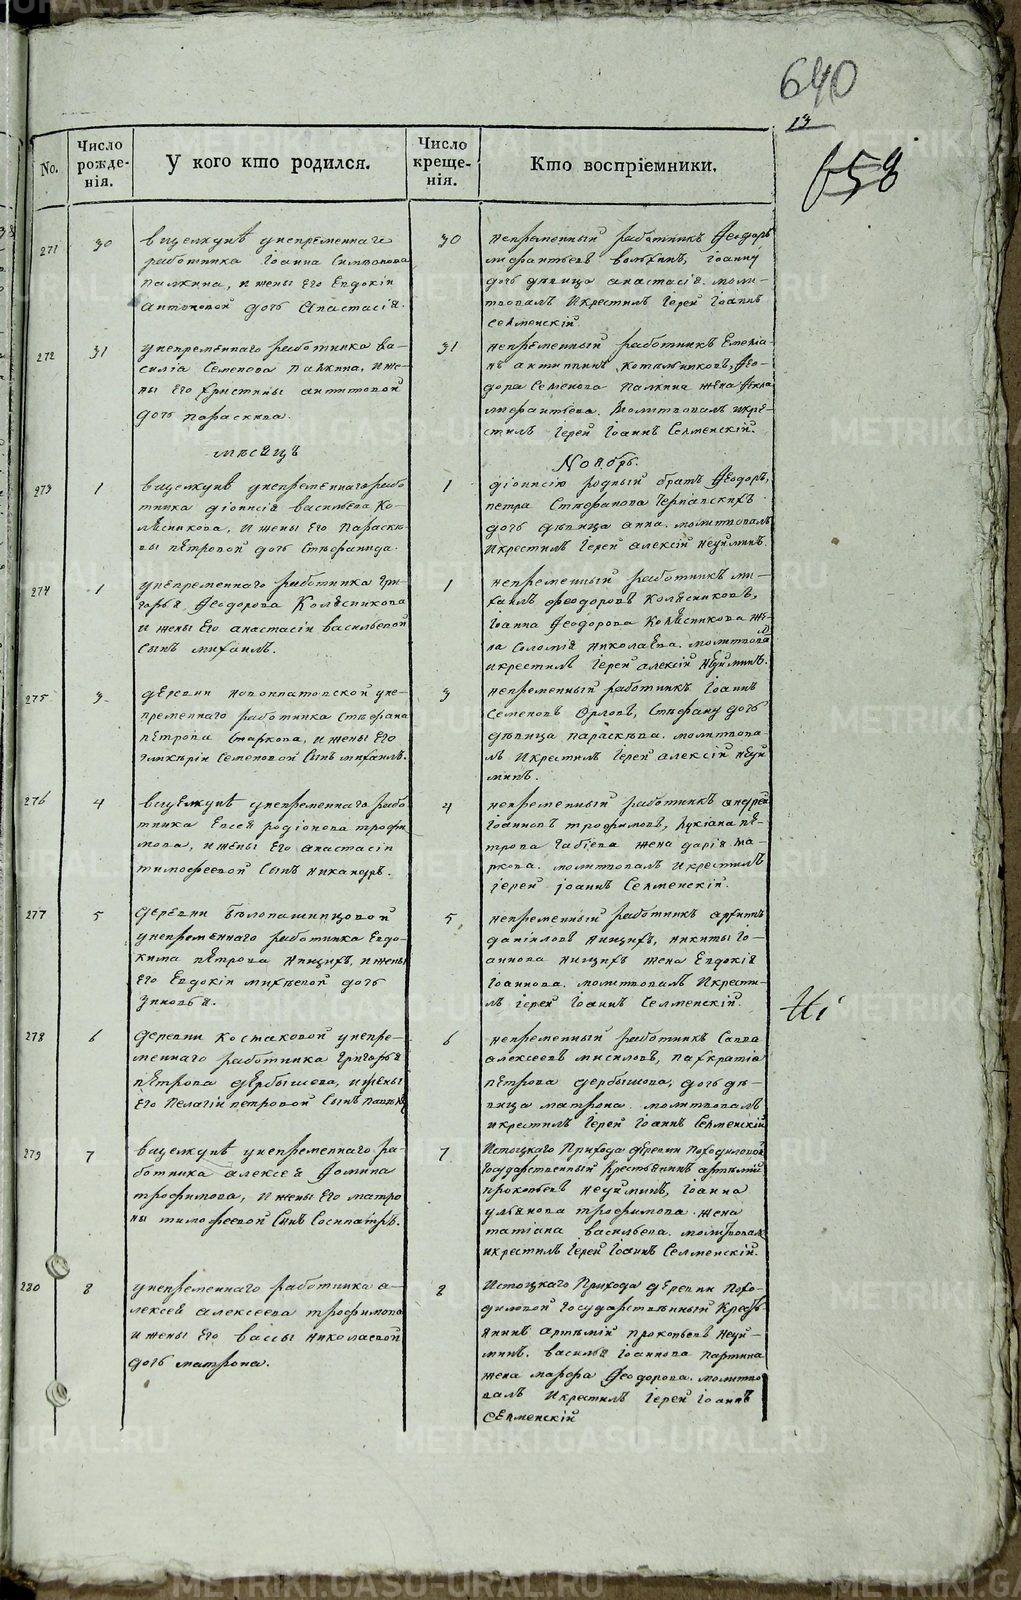 640
13
658
No.
Число рожде-нія.
У кого кто родился.
Число креще-нія.
Кто воспріемники.
271
30
вицелкунѣ унепременнаго
работника Іоанна Симионова
Палкина, и жены Его Евдокіи
Антоновой дочь Анастасія.
30
непременный работникъ Ѳеодоръ
Іоанну
дочь дѣвица анастасія. моли-
твовалъ Икрестилъ Іерей Іоаннъ
Селменскій.
272
31
унепременнаго работника ва-
силіа Семенова Палкина, и же-
ны Его Христины антиповой
дочь Параскева.
31
непременный работникъ Емеліа-
нъ антипинъ Ѳео-
дора Семенова Палкина жена Ѳекла
Молитвовалъ икре-
стилъ Іерей Іоаннъ Селменскій.
мѣсяцъ
Ноябрь.
273
1
вицелкунѣ унепременнаго рабо
тника діонисія васильева Ко-
лѣсникова, И жены Его Параске-
вы пЕтровой дочь Стефанида.
1
діонисію родный братъ Ѳеодоръ,
петра Стефанова Чернавскихъ
дочь дѣвица анна. молитвовалъ
Икрестилъ Іерей алексій Неуйминъ.
274
1
унепременнаго работника Гри-
горья Ѳеодорова Колѣсникова
и жены Его анастасіи васильевой
Сынъ михаилъ.
1
непременный работникъ ми-
хаилъ Ѳеодоровъ Колѣсниковъ,
Іоанна Ѳеодорова Колѣсникова же-
на Соломія Николаева. молитвовалъ
икрестилъ Іерей алексій Неуйминъ.
275
3
дЕревни новоипатовской уне-
пременнаго работника Стефана
пЕтрова Старкова, и жены Его
гликеріи Семеновой Сынъ михаилъ.
3
непременный работникъ Іоаннъ
Семеновъ Орловъ, Стефану дочь
дѣвица параскева. молитвова-
лъ Икрестилъ Іерей алексій Неуй
минъ.
276
4
вицелкунѣ унепременнаго рабо
тника Евсея родіонова трофи
мова, и жены Его анастасіи
тимофеевой Сынъ никаноръ.
4
непременный работникъ андрей
Іоанновъ трофимовъ, Лукіана пЕ-
трова Габіева жена дарія ма-
ркова. молитвовалъ икрестилъ
іерей іоаннъ Селменскій.
277
5
деревни Белопашинцовой
унепременнаго работника Евдо-
кима пЕтрова Нищихъ, и жены
Его Евдокіи михѣевой дочь
Зиновья.
5
непременный работникъ архипъ
даніиловъ нищихъ, никиты Іо-
аннова нищихъ жена Евдокія
Іоаннова. молитвовалъ Икрести-
лъ іерей Іоаннъ Селменскій.
278
6
деревни Костаковой унепре-
меннаго работника Григорья
пЕтрова дербышева, и жены
Его Пелагіи петровой Сынъ Павелъ
6
непременный работникъ Савва
алексеевъ мисиловъ, панкратіа
пЕтрова дербышова, дочь дѣ-
вица матрона. молитвовалъ
икрестилъ Іерей Іоаннъ Селменскій
279
7
вицелкунѣ унепременнаго ра-
ботника алексея Ѳомина
трофимова, И жены Его матро
ны тимофеевой Сынъ Сосипатръ.
7
Истоцкаго Прихода дЕревни Походиловой
Государственный Крестьянинъ артимій
прокопьевъ Неуйминъ, Іоанна
ульянова трофимова жена
татіана васильева. молитвовалъ
икрестилъ Іерей Іоаннъ Селменскій.
280
8
унепременнаго работника а-
лексея алексеева трофимова
и жены Его вассы николаевой
дочь матрона.
8
Истоцкаго Прихода дЕревни Похо-
диловой Государственный Кресть
янинъ артимій прокопьевъ Неуй-
минъ. василья Іоаннова партина
жена марфа Ѳеодорова. молитво
валъ Икрестилъ Іерей Іоаннъ
СЕлменскій
METRIKI.GASU-URAL.RU